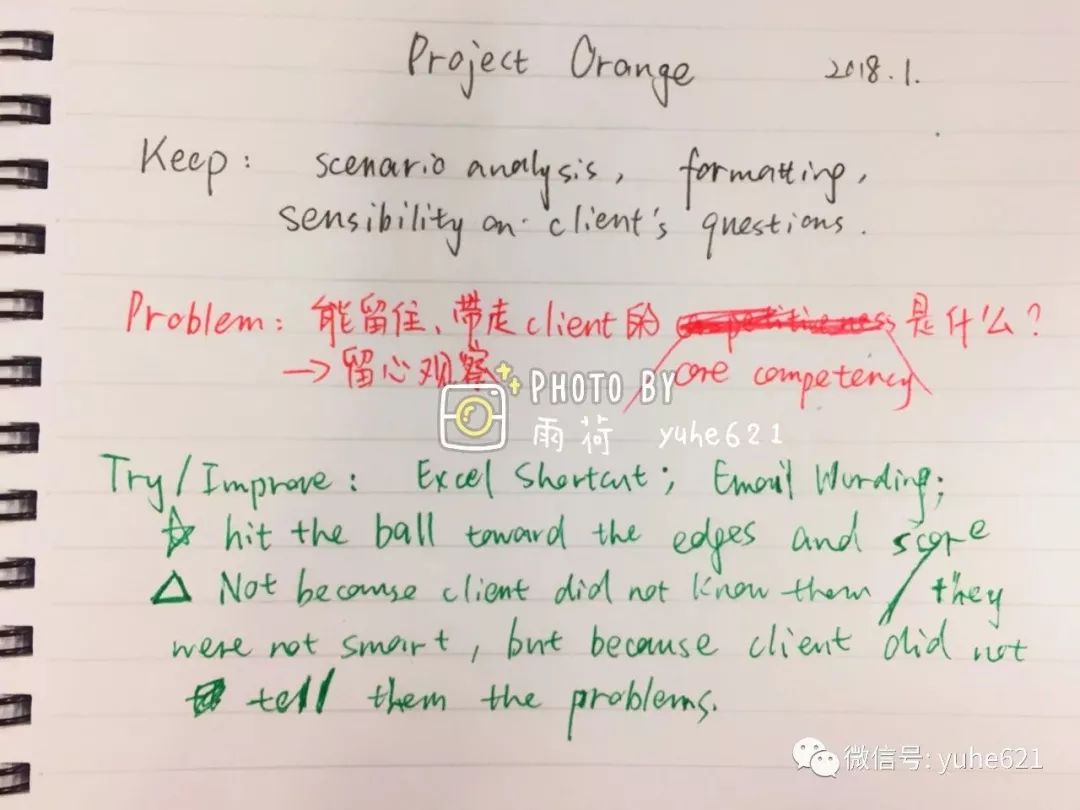 Project Orange 2018.1.
Keep: scenario analysis, formatting,
sensibility on client's questions.
Problem: 能留住、带走client的 competitiveness 是什么?
→留心观察 core competency
PHOTO BY
雨荷 yuhe621
Try/Improve: Excel Shortcut; Email Wording;
☆ hit the ball toward the edges and score
△ Not because client did not know them / they
were not smart, but because client did not
tell them the problems.
微信号: yuhe621